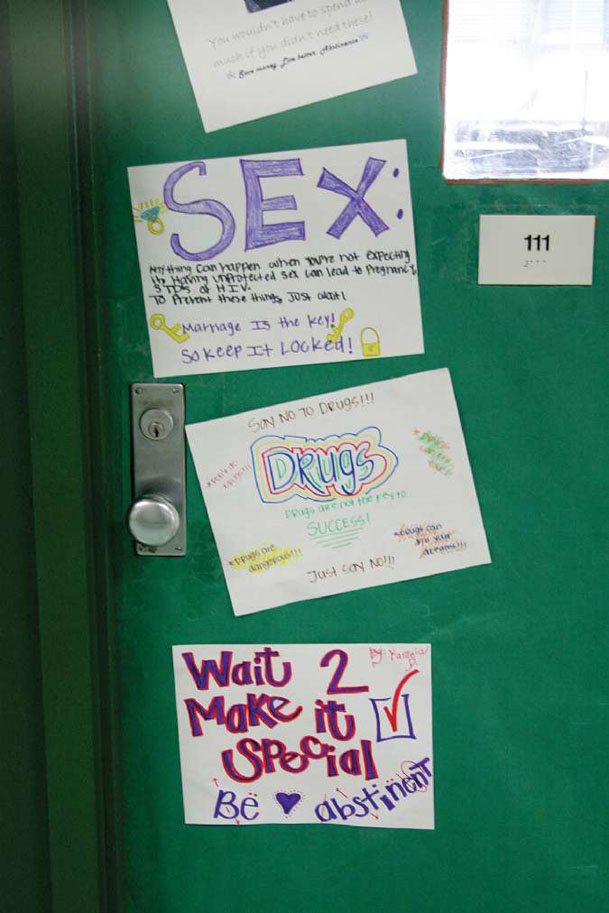 You wouldn't have to spend as
much if you didn't need these!
Save money. Live better. Abstinence
SEX:
Anything can happen when you're not expecting
it. Having unprotected sex can lead to Pregnancy,
STDs or H.I.V.
To Prevent these things Just wait!
Marriage Is the key!
So keep It Locked!
111
SAY NO TO DRUGS!!!
DRUGS
Drugs are not the key to
SUCCESS!
*Drugs are
dangerous!!!
*Drugs can
your
dreams!!!
JUST SAY NO!!!
By:
Wait 2
Make it
Special
Be abstinent